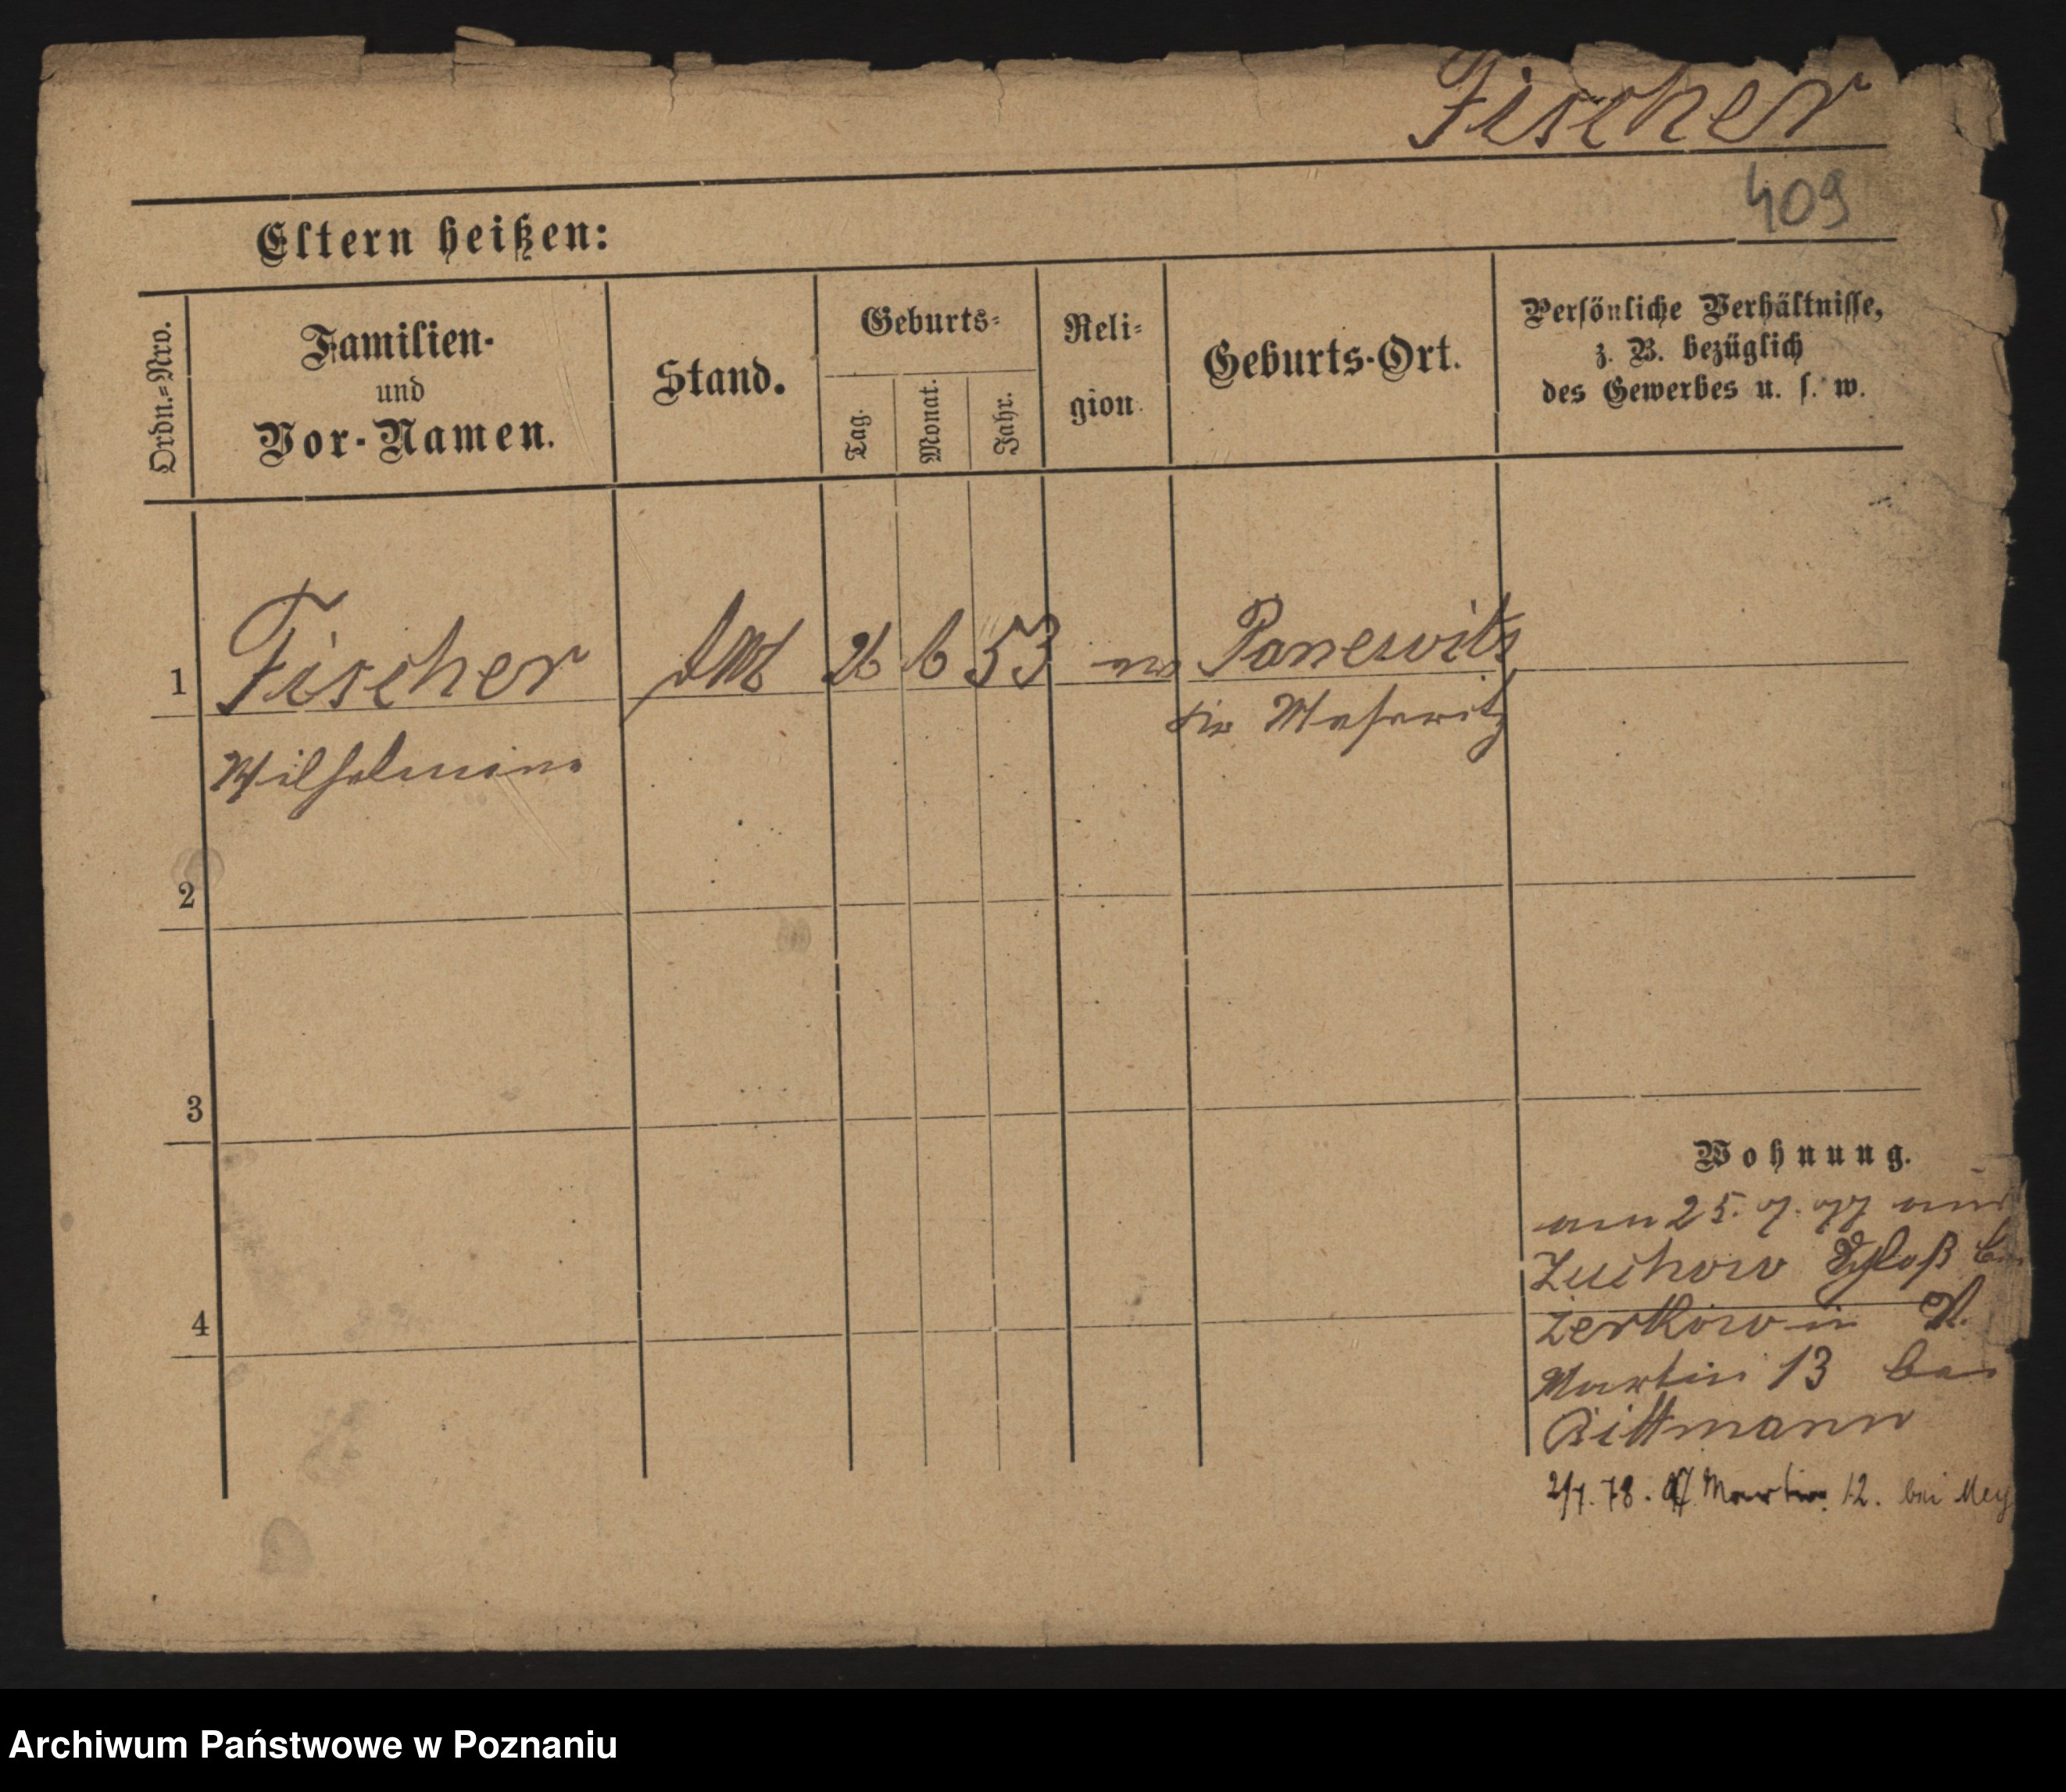 Fischer
409
Eltern heißen:
Ordn.=Nro.
Familien-
und
Vor-Namen.
Stand.
Geburts=
Tag.
Monat.
Jahr.
Reli=
gion
Geburts-Ort.
Persönliche Verhältnisse,
z. B. bezüglich
des Gewerbes u. s. w.
1
Fischer
26
6
53
Panewitz
Wilhelmine
2
3
Wohnung.
am 25. 7. 77 aus
Zuchow Schloß bei
4
Zerkow in
Martin 13 bei
Bittmann
2/7. 78. Martin 12. bei Mey
Archiwum Państwowe w Poznaniu